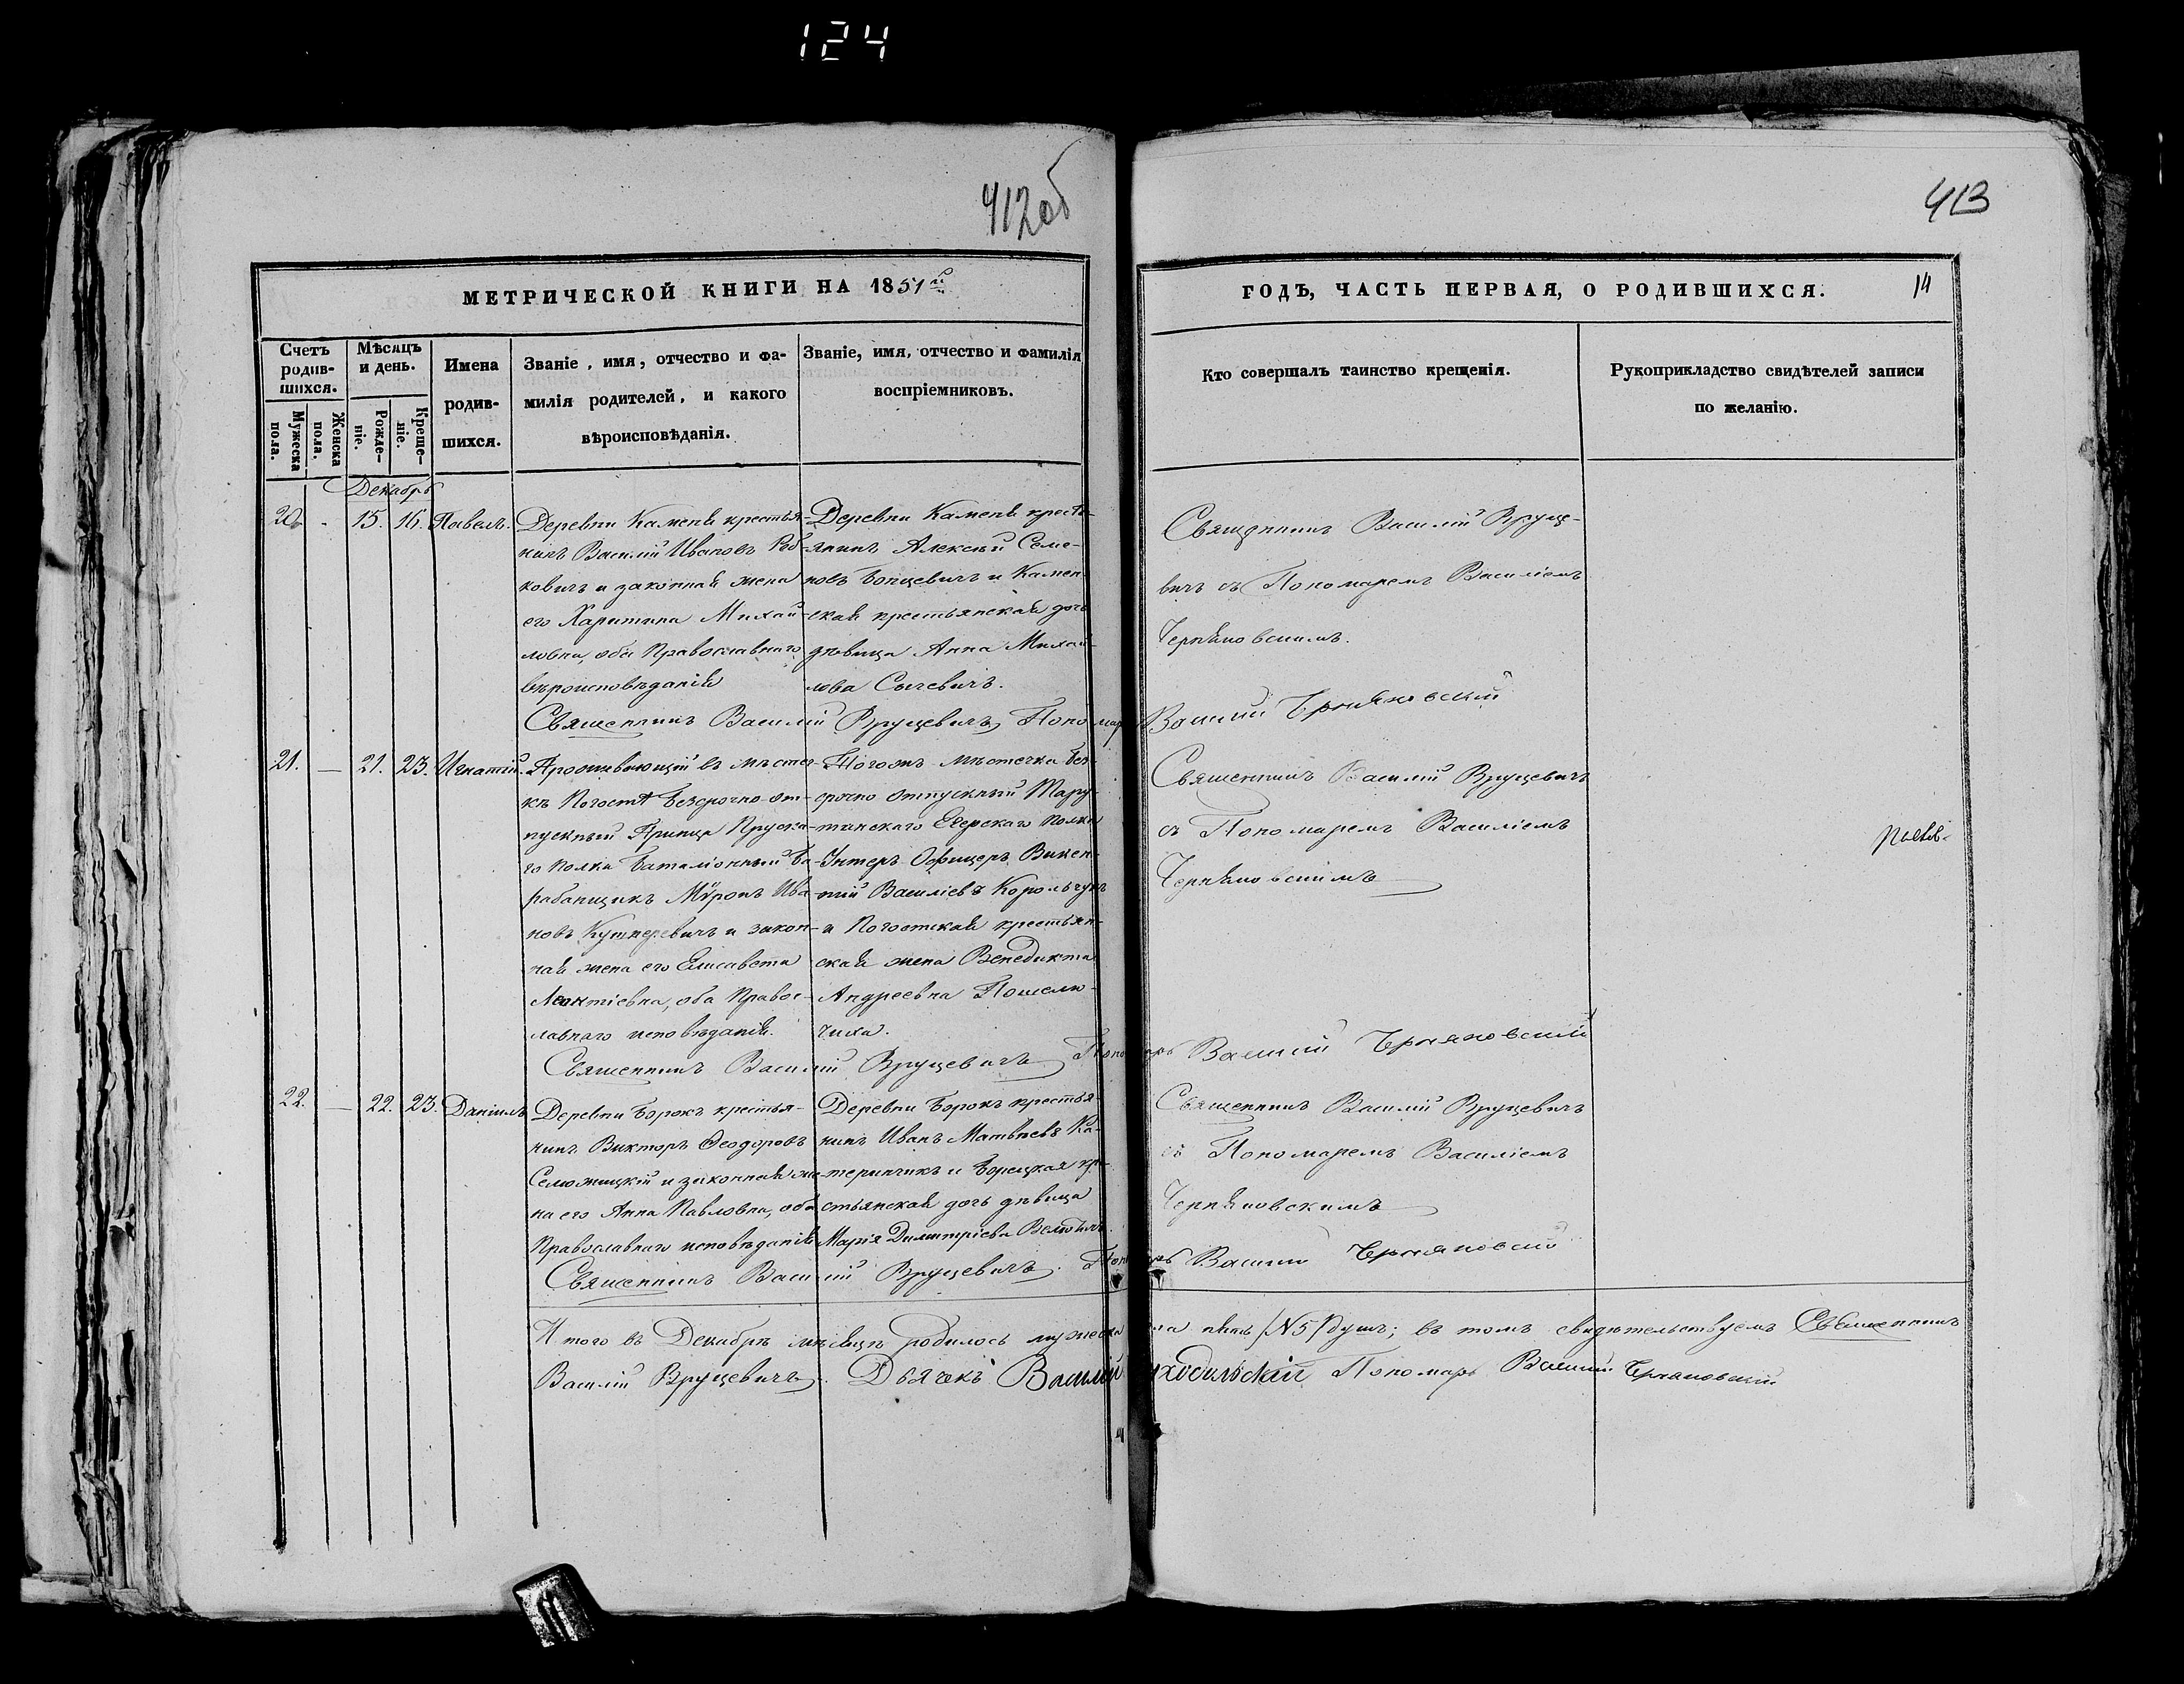 124
412об
413
МЕТРИЧЕСКОЙ КНИГИ НА 1851й
ГОДЪ, ЧАСТЬ ПЕРВАЯ, О РОДИВШИХСЯ.
14
Счетъ родив-шихся.
Мужеска пола.
Женска пола.
Мѣсяцъ и день.
Рожде-ніе.
Креще-ніе.
Имена
родив-
шихся.
Званіе, имя, отчество и фа-
милія родителей, и какого
вѣроисповѣданія.
Званіе, имя, отчество и фамилія
воспріемниковъ.
Кто совершалъ таинство крещенія.
Рукоприкладство свидѣтелей записи
по желанію.
Декабрь
20. - 15. 16. Павелъ.
Деревни Каменя крестья-
нинъ Василій Ивановъ Рад-
ковичъ и законная жена
его Харитина Михай-
ловна, оба Православнаго
вѣроисповѣданія
Деревни Каменя кресть-
янинъ Алексѣй Семе-
новъ Концевичъ и Камен-
ская крестьянская дочь
дѣвица Анна Михай-
лова Сычевичъ.
Священникъ Василій Вруце-
вичъ съ Пономаремъ Василіемъ
Черняновскимъ.
Священникъ Василій Вруцевичъ Пономарь Василий Черняновский
21. — 21. 23. Игнатій.
Проживающій въ мѣстеч-
кѣ Погостѣ безсрочно-от-
пускный Принца Пруска-
го полка баталіонный ба-
рабанщикъ Мѵронъ Ива-
новъ и закон-
ная жена его Елисавета
Леонтіевна, оба Правос-
лавнаго исповѣданія.
Погостъ мѣстечка без-
срочно отпускный Тару-
тинскаго Егерскаго полка
Унтеръ Офицеръ Викен-
тій Василіевъ Корольчукъ
и Погостская крестьян-
ская жена Венедикта
Андреевна Пошелю-
чиха.
Священникъ Василій Вруцевичъ
съ Пономаремъ Василіемъ
Черняновскимъ
Священникъ Василій Вруцевичъ Пономарь Василий Черняновский
22. — 22. 23. Даніилъ
Деревни Борокъ крестья-
нинъ Викторъ Ѳеодоровъ
и законная же-
на его Анна Павловна, оба
Православнаго исповѣданія
Деревни Борокъ крестья-
нинъ Иванъ Матвѣевъ Ка-
теринчикъ и Борецкая кре-
стьянская дочь дѣвица
Марія Димитріева
Священникъ Василій Вруцевичъ
съ Пономаремъ Василіемъ
Черняновскимъ
Священникъ Василій Вруцевичъ. Пономарь Василий Черняновский
Итого въ Декабрѣ мѣсяцѣ родилось мужеска пола пять /№5/ душъ; въ томъ свидѣтельствуемъ Священникъ
Василій Вруцевичъ. Дьячекъ Василій Пономарь Василий Черняновский